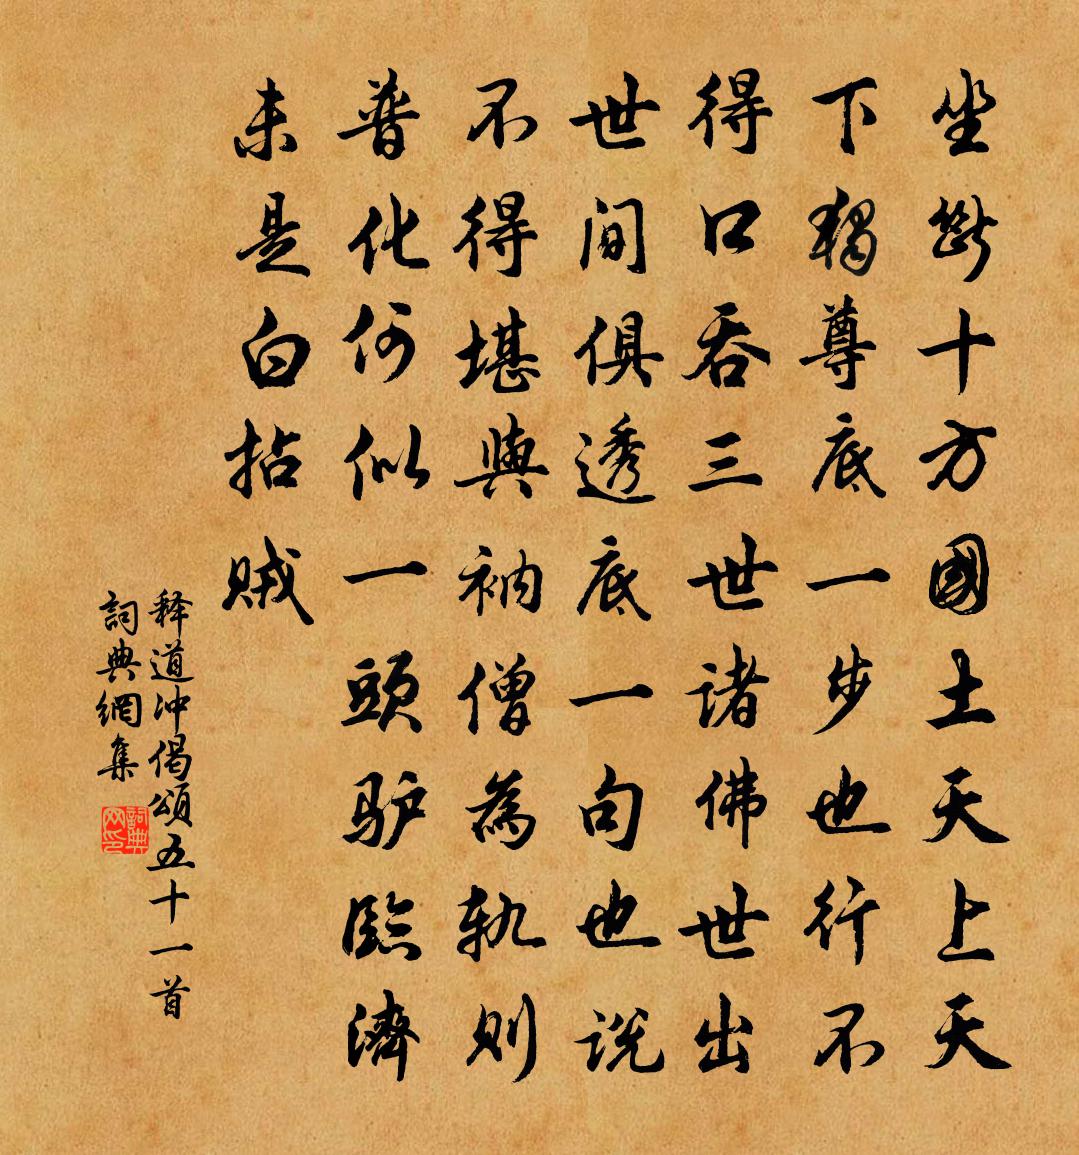 坐斷十方國土天上天
下獨尊底一步也行不
得口吞三世諸佛世出
世間俱透底一句也说
不得堪與衲僧為軌則
普化何似一頭驴臨濟
未是白拈贼
释道冲偈頌五十一首
詞典網集
詞典网印